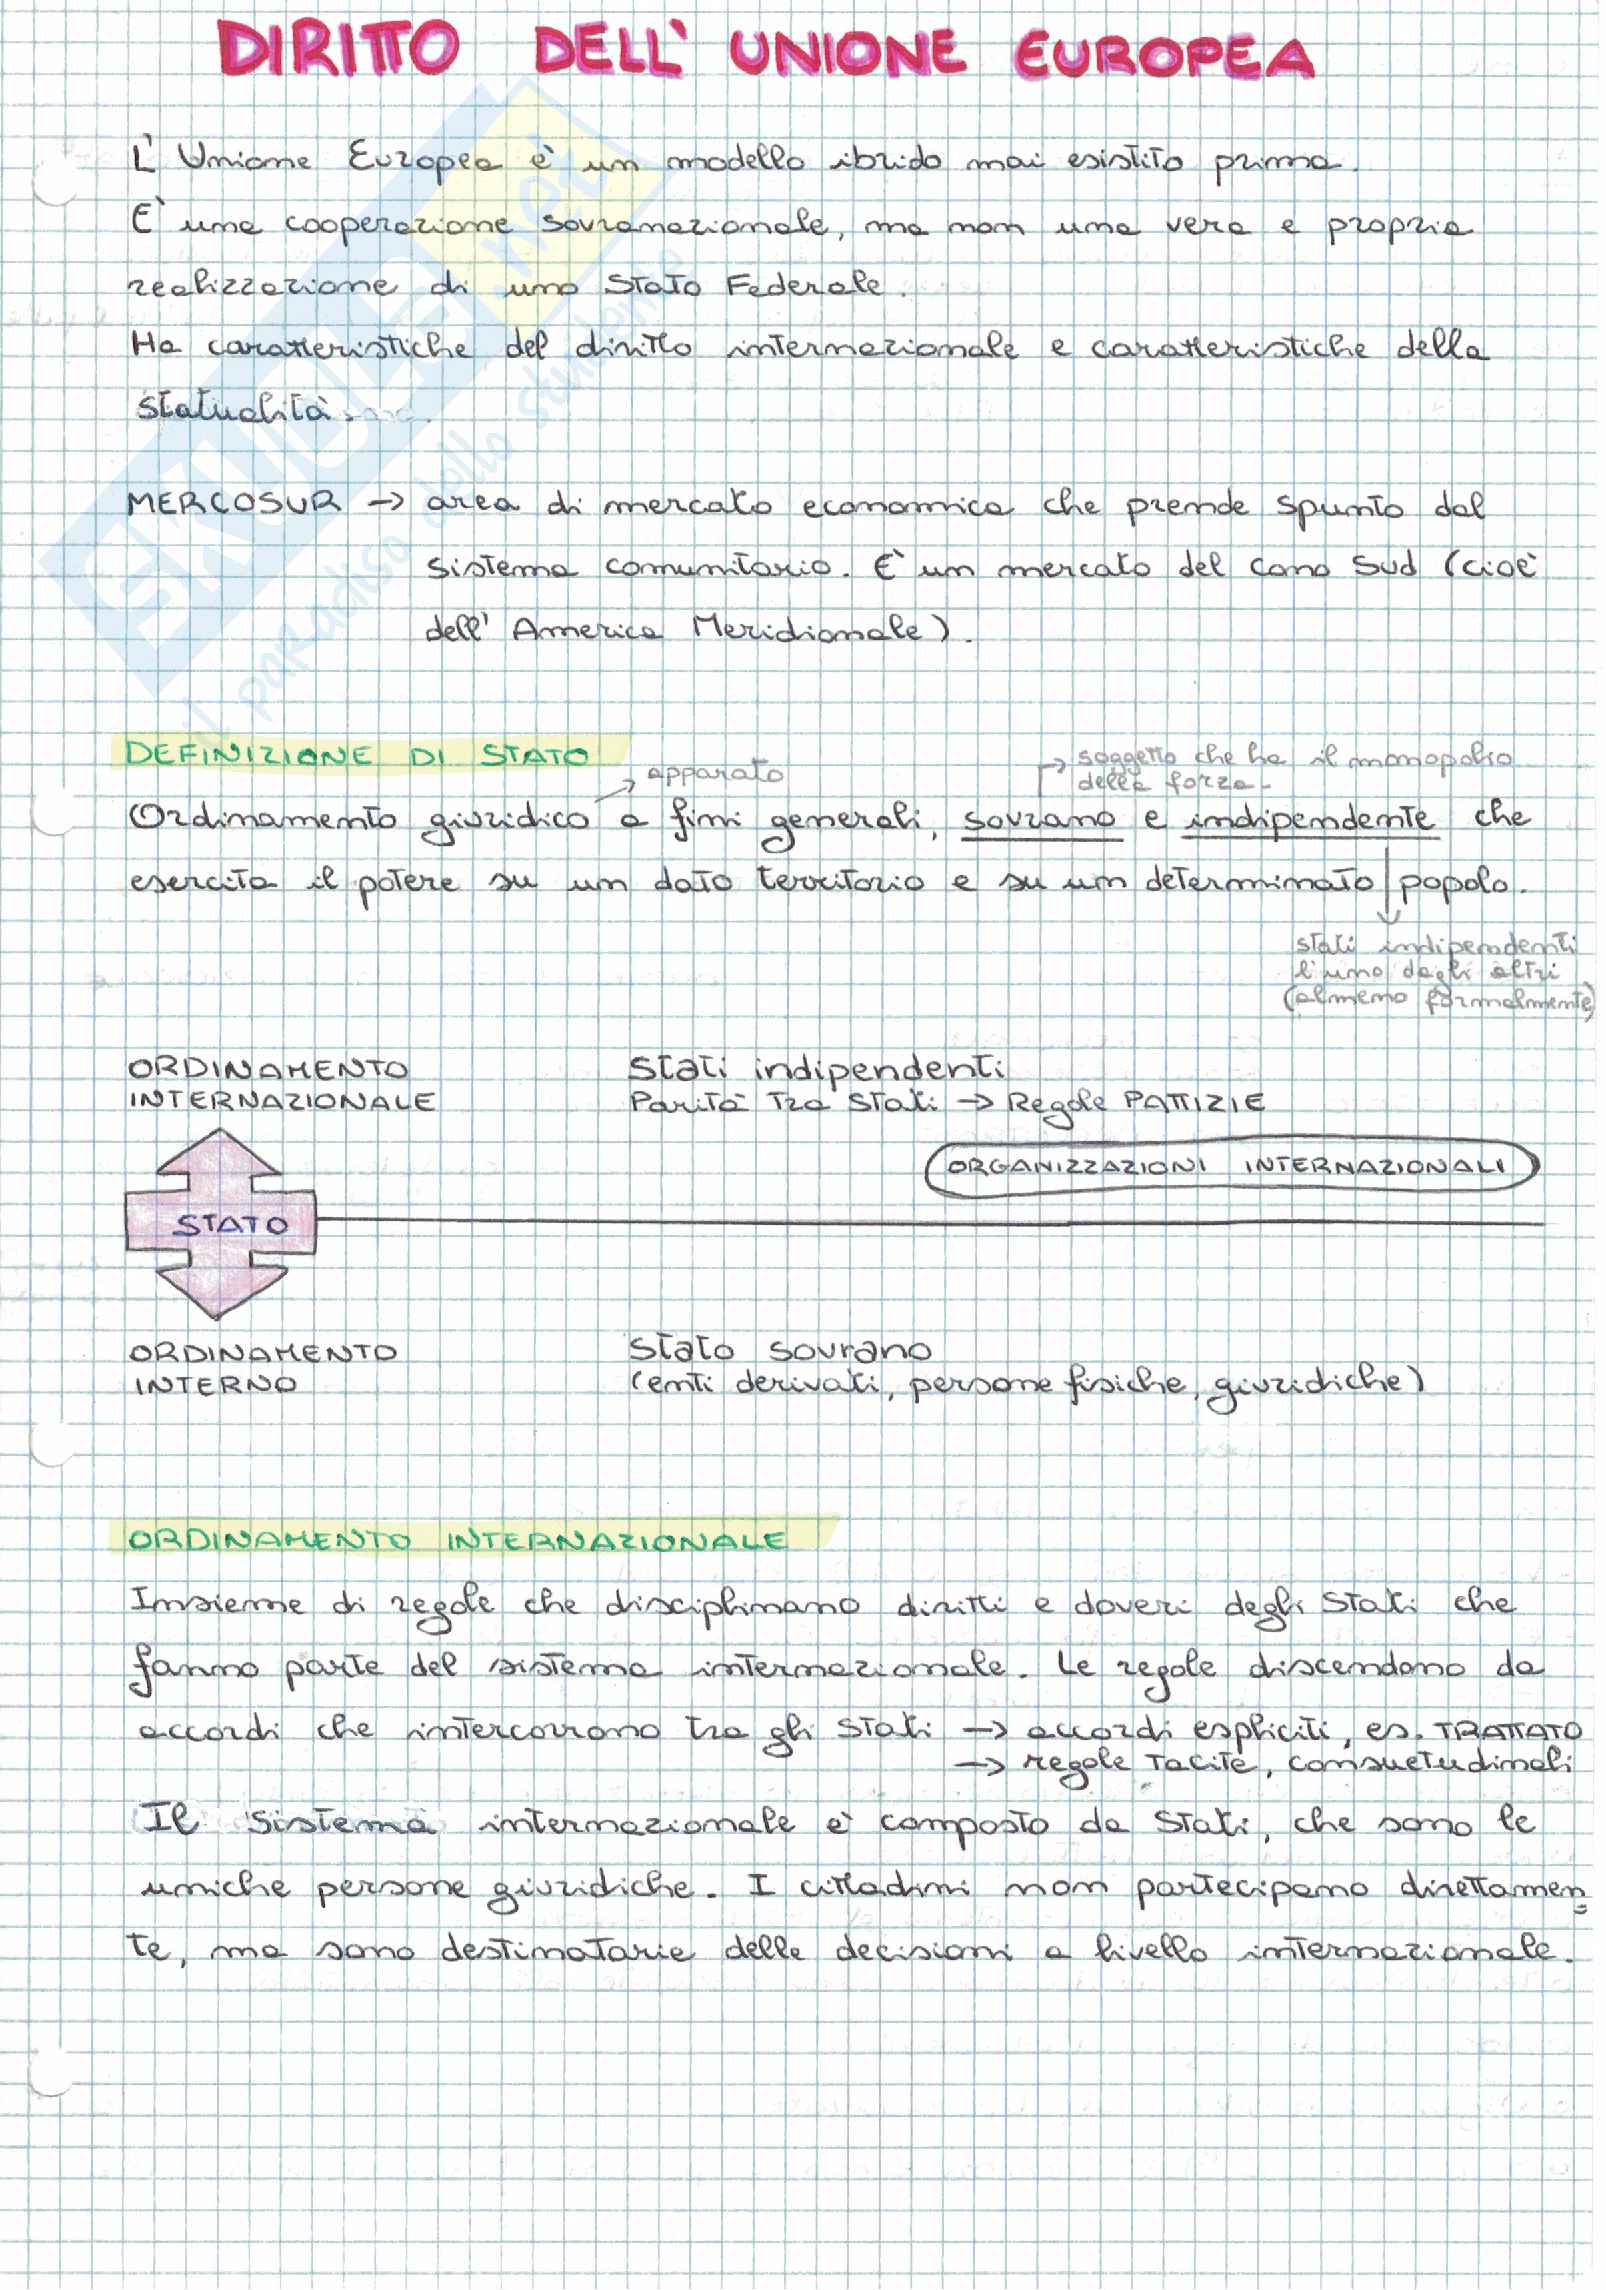 DIRITTO DELL' UNIONE EUROPEA
L'Unione Europea è un modello ibrido mai esistito prima.
E' una cooperazione sovranazionale, ma non una vera e propria
realizzazione di uno Stato Federale.
Ha caratteristiche del diritto internazionale e caratteristiche della
statualità.
MERCOSUR → area di mercato economica che prende spunto dal
sistema comunitario. E' un mercato del cono Sud (cioè
dell'America Meridionale).
DEFINIZIONE DI STATO
apparato
soggetto che ha il monopolio
della forza
Ordinamento giuridico a fini generali, sovrano e indipendente che
esercita il potere su un dato territorio e su un determinato popolo.
stati indipendenti
l'uno dagli altri
(almeno formalmente)
ORDINAMENTO
INTERNAZIONALE
Stati indipendenti
Parità tra Stati → Regole PATTIZIE
ORGANIZZAZIONI INTERNAZIONALI
STATO
ORDINAMENTO
INTERNO
Stato sovrano
(enti derivati, persone fisiche, giuridiche)
ORDINAMENTO INTERNAZIONALE
Insieme di regole che disciplinano diritti e doveri degli Stati che
fanno parte del sistema internazionale. Le regole discendono da
accordi che intercorrono tra gli Stati → accordi espliciti, es. TRATTATO
→ regole tacite, consuetudinali
Il sistema internazionale è composto da Stati, che sono le
uniche persone giuridiche. I cittadini non partecipano direttamen=
te, ma sono destinatarie delle decisioni a livello internazionale.
SKUOLA.net
il paradiso dello studente